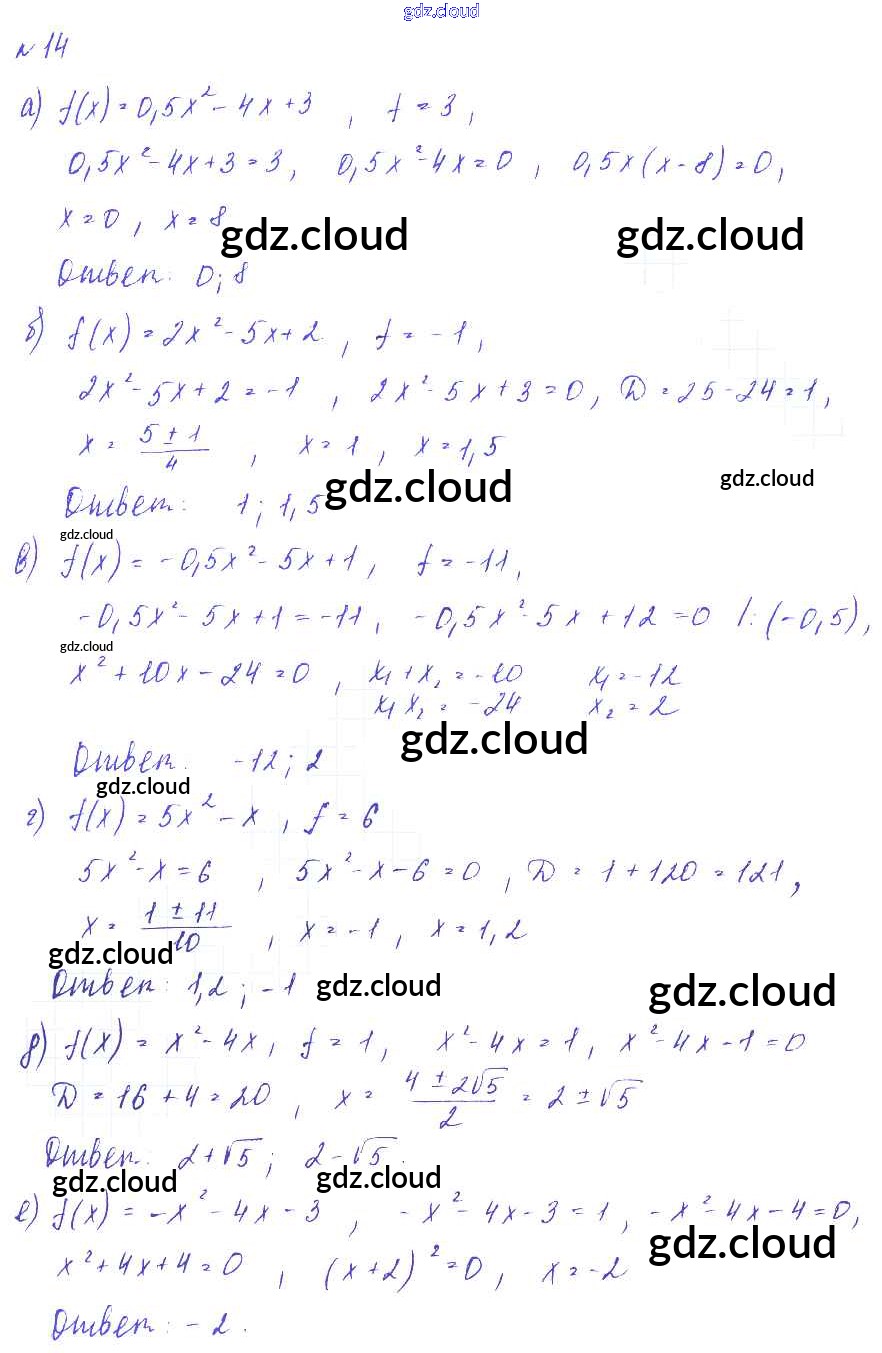 gdz.cloud
№14
а) f(x)=0,5x²-4x+3, f=3,
0,5x²-4x+3=3, 0,5x²-4x=0, 0,5x(x-8)=0,
x=0, x=8
gdz.cloud gdz.cloud
Ответ: 0; 8
б) f(x)=2x²-5x+2, f=-1,
2x²-5x+2=-1, 2x²-5x+3=0, D=25-24=1,
x=(5±1)/4, x=1, x=1,5
gdz.cloud gdz.cloud
Ответ: 1; 1,5
gdz.cloud
в) f(x)=-0,5x²-5x+1, f=-11,
-0,5x²-5x+1=-11, -0,5x²-5x+12=0 |:(-0,5),
gdz.cloud
x²+10x-24=0, x₁+x₂=-10 x₁=-12
x₁x₂=-24 x₂=2
gdz.cloud
Ответ: -12; 2
gdz.cloud
г) f(x)=5x²-x, f=6
5x²-x=6, 5x²-x-6=0, D=1+120=121,
x=(1±11)/10, x=-1, x=1,2
gdz.cloud
Ответ: 1,2; -1
gdz.cloud gdz.cloud
д) f(x)=x²-4x, f=1, x²-4x=1, x²-4x-1=0
D=16+4=20, x=(4±2√5)/2=2±√5
Ответ: 2+√5; 2-√5.
gdz.cloud gdz.cloud
е) f(x)=-x²-4x-3, -x²-4x-3=1, -x²-4x-4=0,
gdz.cloud
x²+4x+4=0, (x+2)²=0, x=-2
Ответ: -2.